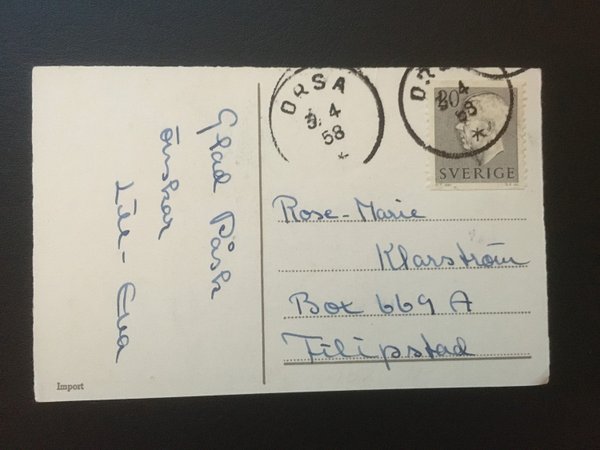 Glad Påsk
önskar
Lill-Eva
Import
ORSA
3.4
58
4
58
20
SVERIGE
Rose-Marie
Klarström
Box 669 A
Filipstad